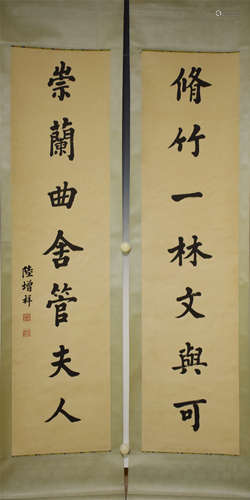 脩竹一林文與可
崇蘭曲舍管夫人
陸增祥